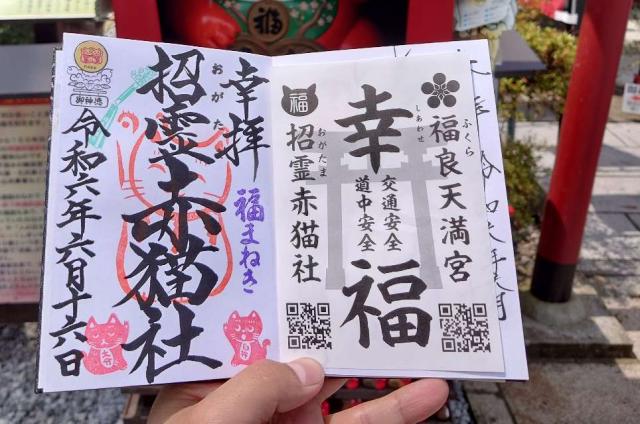 幸拝
招霊赤猫社
おがたま
福まねき
令和六年六月十六日
御神徳
福良天満宮
ふくら
幸
しあわせ
福
交通安全
道中安全
福
招霊赤猫社
おがたま
福